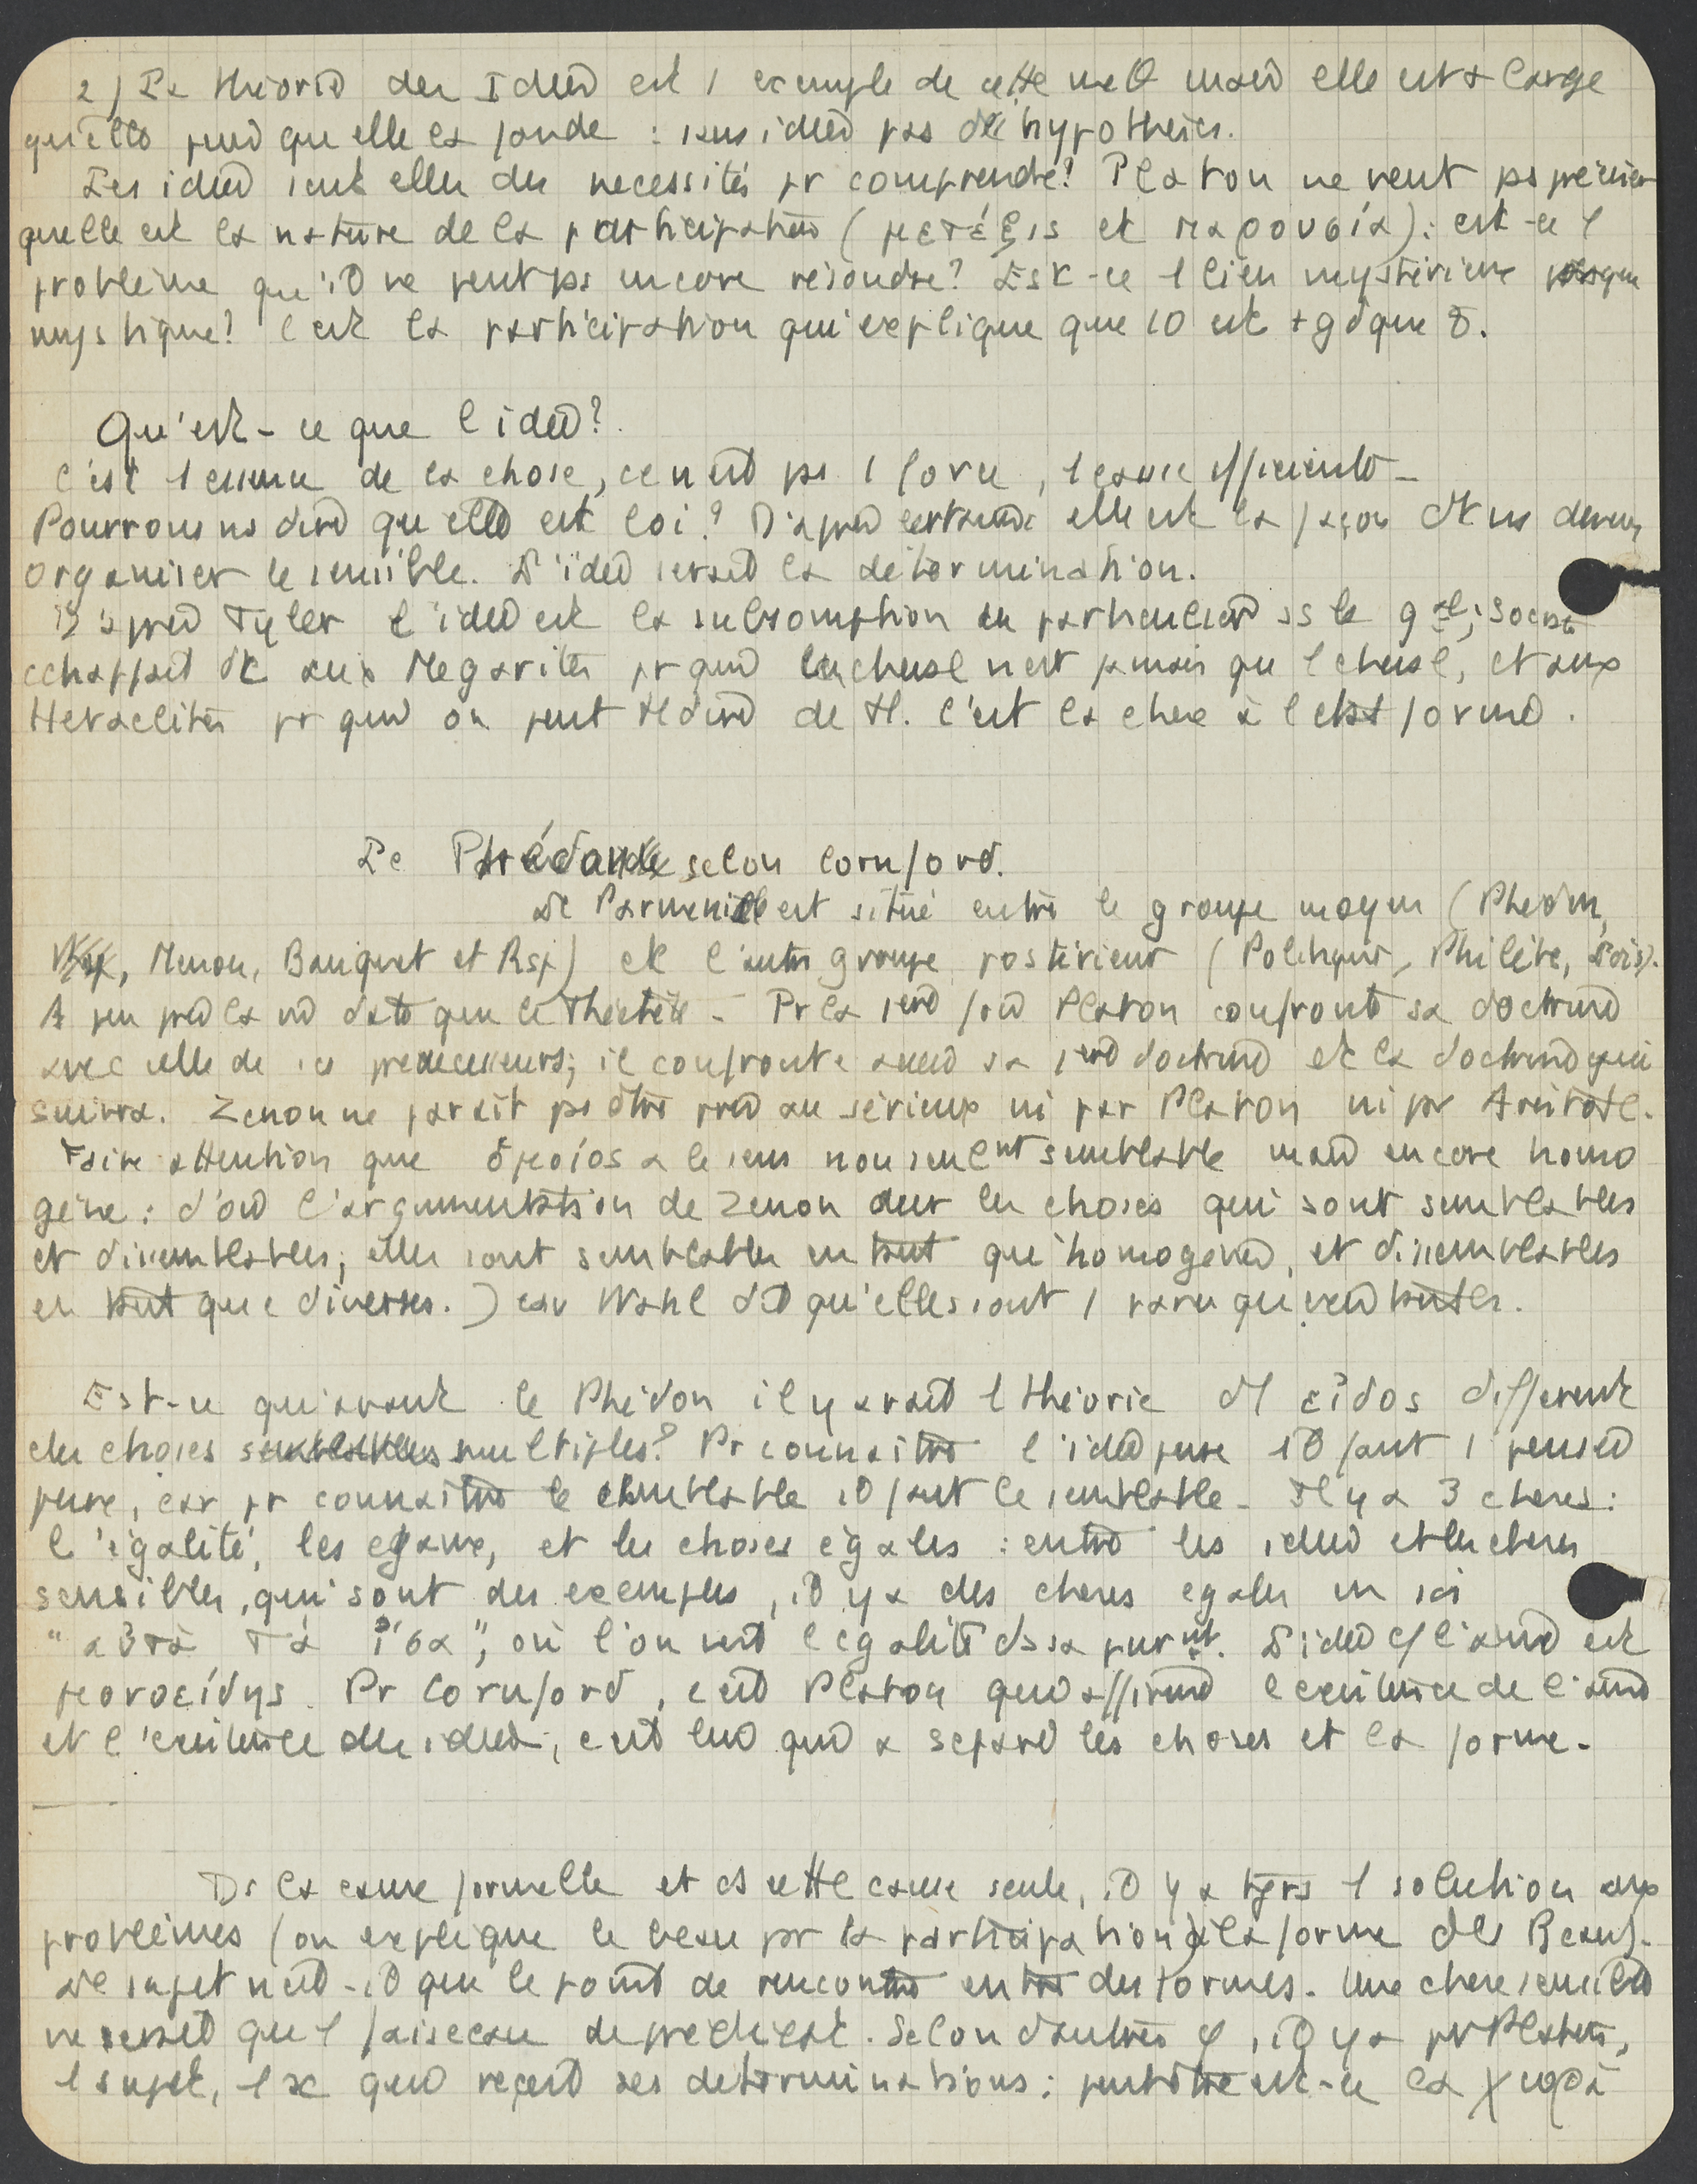 2) La théorie des Idées est 1 exemple de cette méθ mais elle est + large
qu'elle puisqu'elle la fonde : sans idées pas d'hypothèses.
Les idées sont elles des necessités pr comprendre? Platon ne veut ps préciser
quelle est la nature de la participation (μετέξις et παρουσία): est-ce 1
problème qu'il ne peut ps encore résoudre? Est-ce 1 lien mystérieux presque
mystique? C'est la participation qui explique que 10 est + gd que 8.
Qu'est-ce que l'idée?
C'est l'essence de la chose, ce n'est ps 1 force, 1 cause efficiente -
Pourrons ns dire qu'elle est loi? D'après certains elle est la façon dt ns devons
organiser le sensible. L'idée serait la détermination.
D'après Tyler l'idée est la subsomption du particulier ss le gal; Socrate
echappait dc aux Megarites pr qui 1 cheval n'est jamais qu'1 cheval, et aux
Heraclitéens pr qui on peut tt dire de tt. C'est la chose à l'état forme.
Le Parménide selon Cornford.
Le Parmenide est situé entre le groupe moyen (Phédon,
Menon, Banquet et Rsp) et l'autre groupe postérieur (Politique, Philèbe, Lois).
A peu près la m̂ date que le Théétète - Pr la 1ère fois Platon confronte sa doctrine
avec celle de ses predecesseurs; il confronte aussi sa 1ère doctrine et la doctrine qui
suivra. Zenon ne parait ps être pris au sérieux ni par Platon ni par Aristote.
Faire attention que ὁμοίος a le sens non seulent semblable mais encore homo
gène: d'où l'argumentation de Zenon sur les choses qui sont semblables
et dissemblables; elles sont semblables en tant qu'homogènes, et dissemblables
en tant que diverses.) car Wahl dit qu'elles sont
Est-ce qu'avant le Phédon il y avait 1 théorie d'1 εἶδος différent
des choses multiples? Pr connaitre l'idée pure il faut 1 pensée
pure, car pr connaitre le semblable il faut le semblable - Il y a 3 choses:
l'égalité, les egaux, et les choses égales : entre les idées et les choses
sensibles, qui sont des exemples, il y a des choses egales en soi
"αὐτὰ τὰ ἴσα", où l'on voit l'egalité ds sa puret. L'idée c/ l'âme est
μονοείδης. Pr Cornford, c'est Platon qui affirme l'existence de l'âme
et l'existence des idées; c'est lui qui a séparé les choses et la forme -
Ds la cause formelle et ds cette cause seule, il y a tjrs 1 solution aux
problèmes (on explique le beau par la participation à la forme du Beau).
Le sujet n'est-il que le point de rencontre entre des formes - Une chose sensible
ne serait qu'1 faisceau de prédicats. Selon d'autres φ, il y a pr Platon,
1 sujet, 1 x qui reçoit ses déterminations : peut être est-ce la χώρα